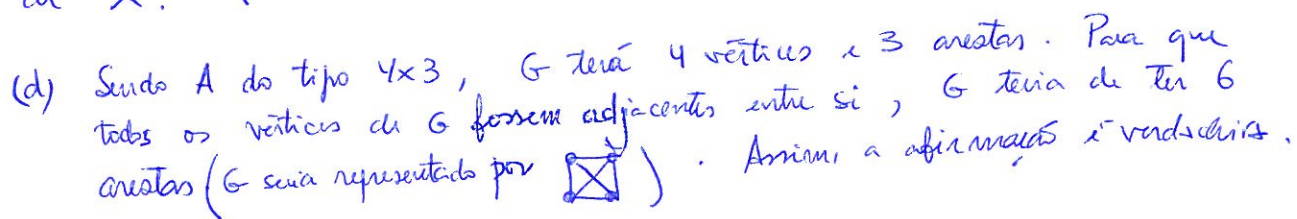 (d) Sendo A do tipo 4x3, G terá 4 vértices e 3 arestas. Para que
todos os vértices de G fossem adjacentes entre si, G teria de ter 6
arestas (G seria representado por ). Assim, a afirmação é verdadeira.